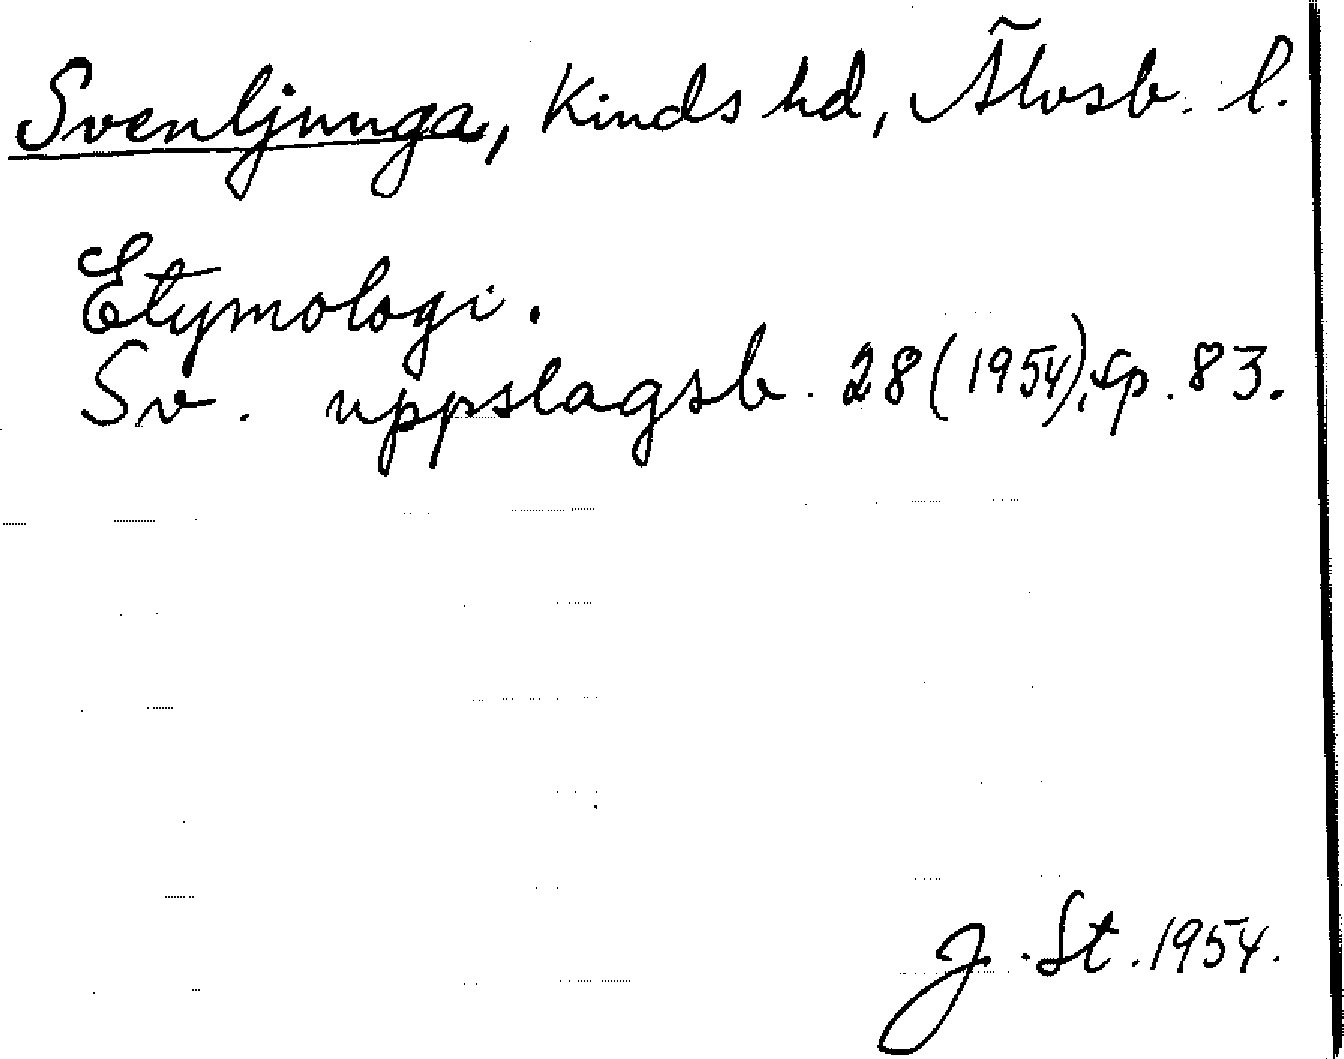 Svenljunga, Kinds hd, Älvsb. l.
Etymologi.
Sv. uppslagsb. 28 (1954), sp. 83.
J. St. 1954.